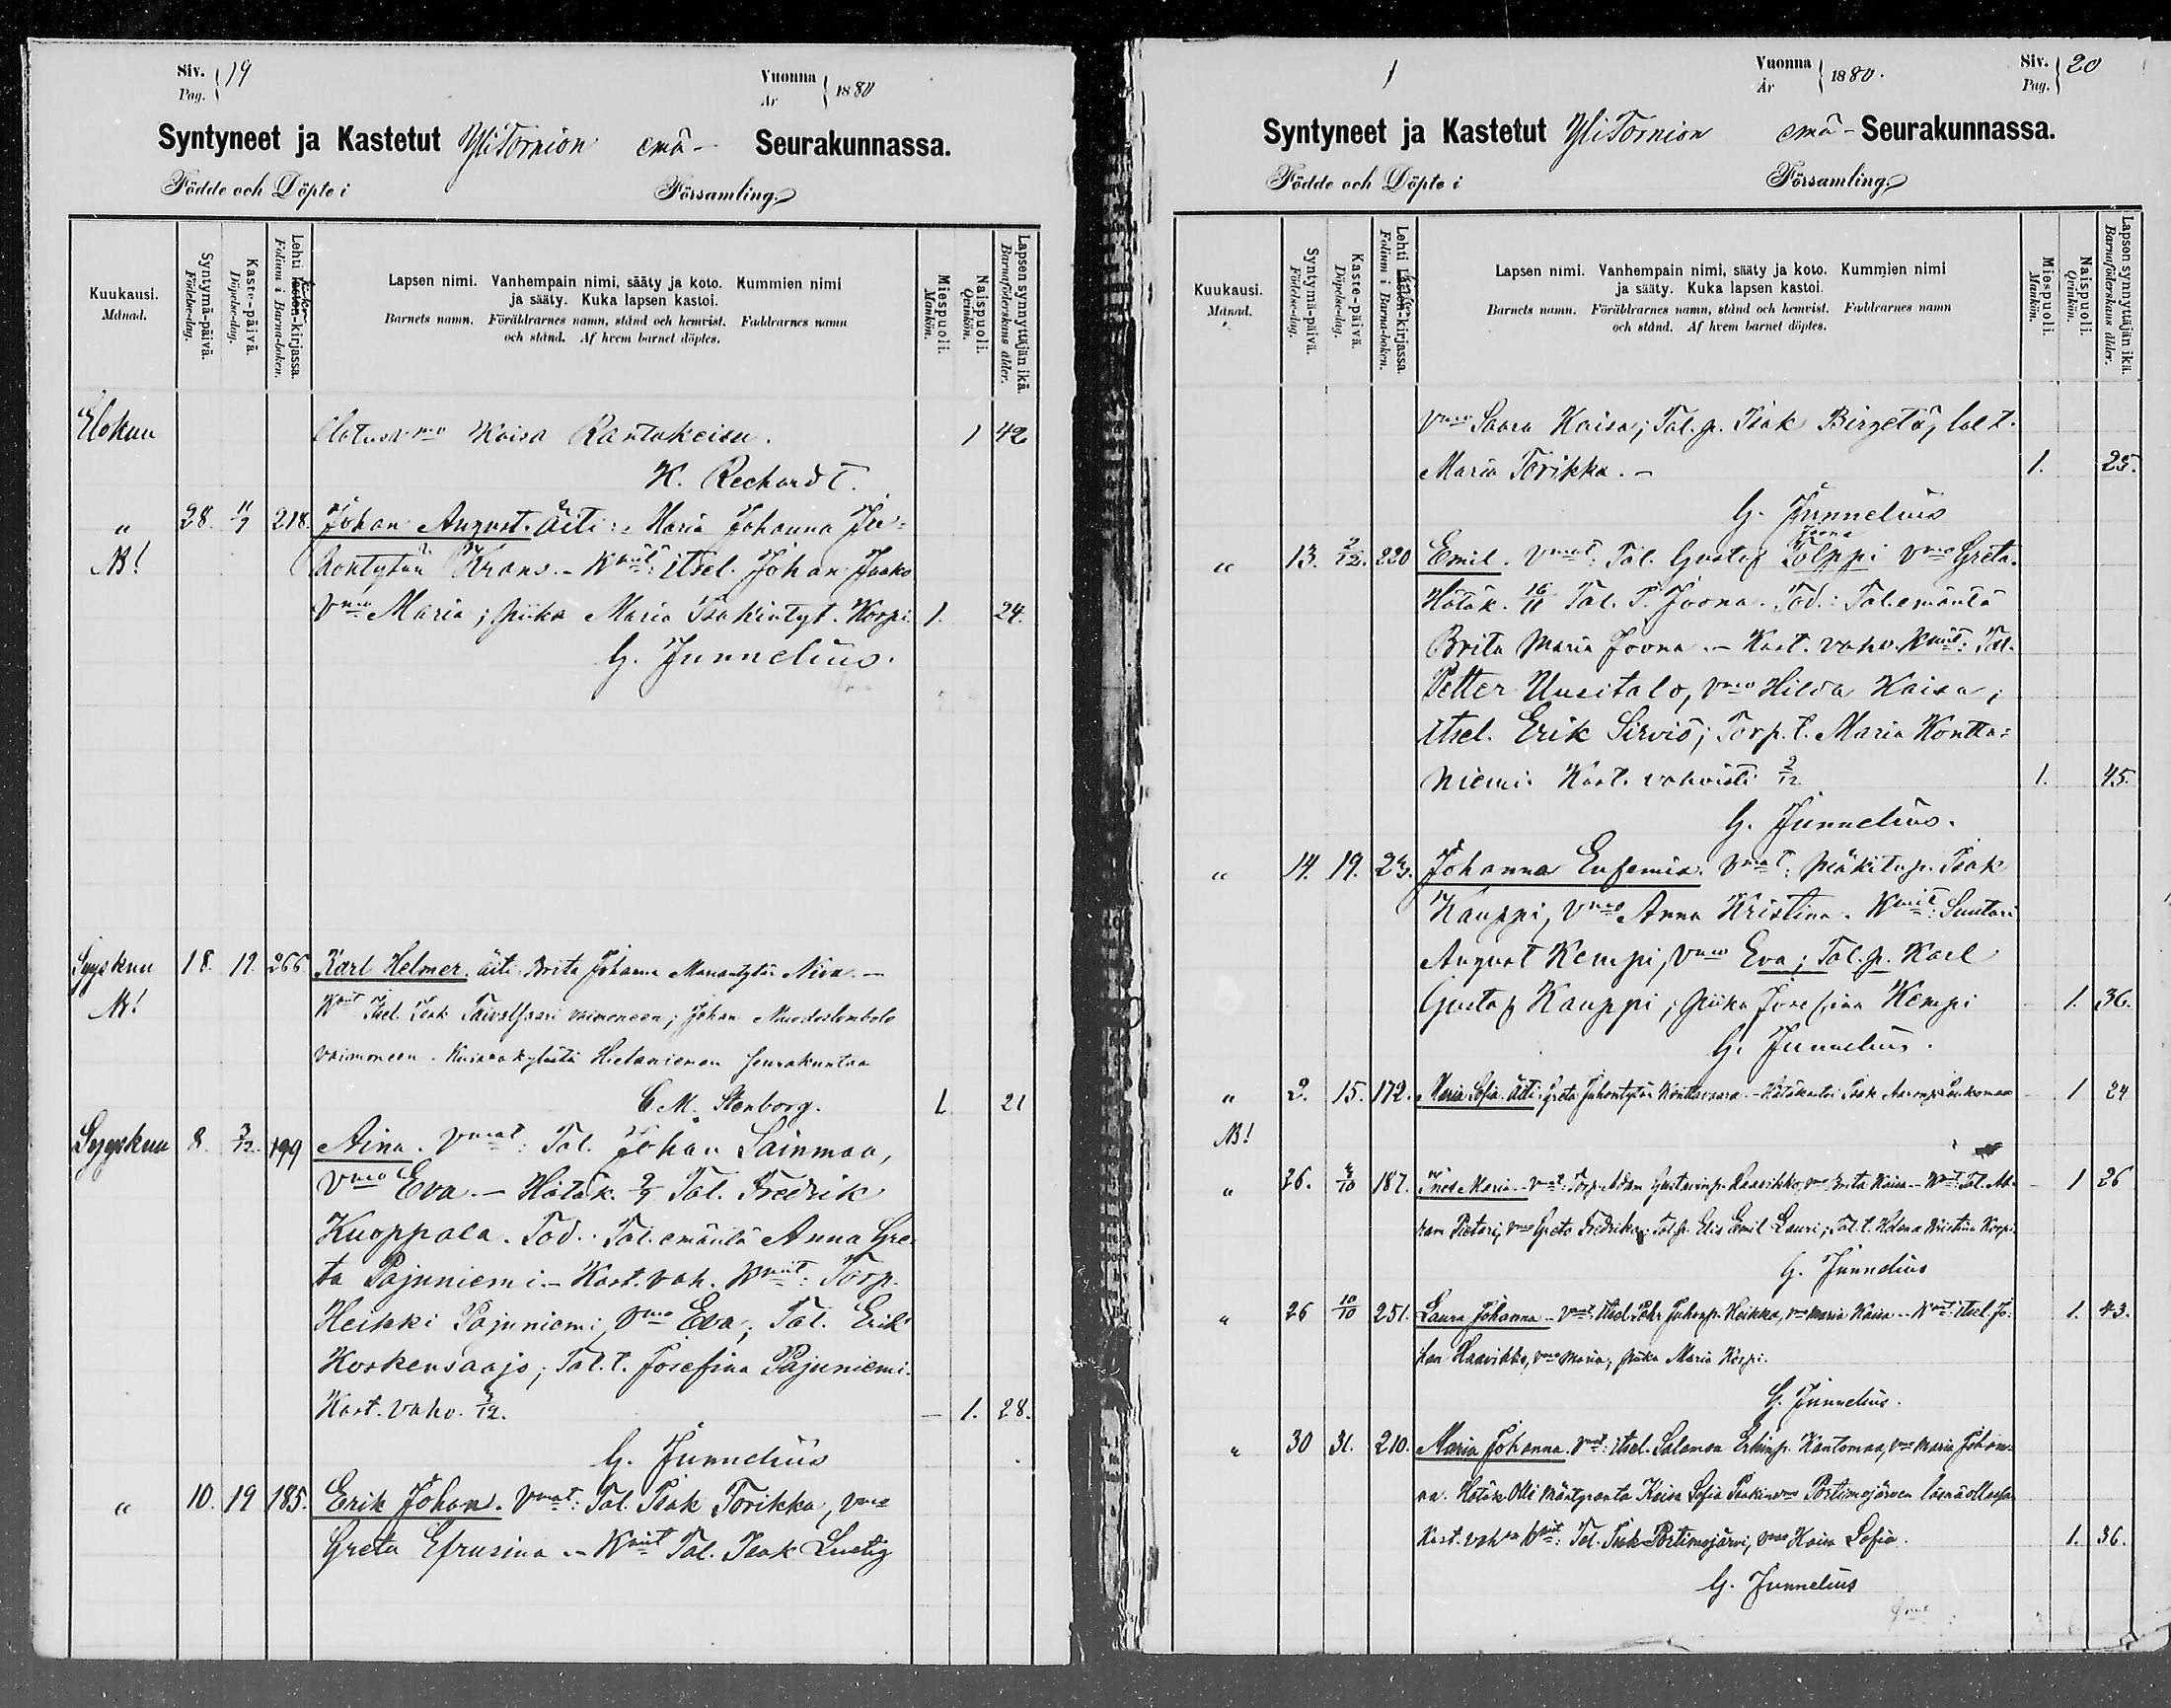 Siv. 19
Pag.
Vuonna 1880
År
Syntyneet ja Kastetut YliTornion emä- Seurakunnassa.
Födde och Döpte i Församling.
Kuukausi.
Månad.
Syntymä-päivä.
Födelse-dag.
Kaste-päivä.
Döpelse-dag.
Lehti lasten-kirjassa.
Folium i Barna-boken.
Lapsen nimi. Vanhempain nimi, sääty ja koto. Kummien nimi
ja sääty. Kuka lapsen kastoi.
Barnets namn. Föräldrarnes namn, stånd och hemvist. Faddrarnes namn
och stånd. Af hvem barnet döptes.
Miespuoli.
Mankön.
Naispuoli.
Qvinkön.
Lapsen synnyttäjän ikä.
Barnaföderskans ålder.
Elokuu Kaisa Rantakeisu. 1 42
K. Rechardt.
" 28. 218. Johan August. Äiti: Maria Johanna
NB! Krans. - Kmit: itsel. Johan Jaako
Vmo Maria; piika Maria Isakintyt. Korpi 1. 24.
G. Junnelius.
Syyskuu 18. 19. 266 Karl Helmer. äiti Brita Johanna Niva. -
NB! Kmit Itsel. Isak vaimoneen; Johan
vaimoneen. Hietaniemen seurakuntaa
C. M. Stenborg. 1. 21
Syyskuu 8. 3/12. 199 Aina. Vmat: Tal. Johan Sainmaa,
Vmo Eva. - Hätäk. 9/9 Tal. Fredrik
Kuoppala. Tod. Tal. emäntä Anna Gre-
ta Pajuniemi. - Kast. vah. Kmit: Torp.
Heikki Pajuniemi, Vmo Eva; Tal. Erik
Koskensaajo; Tal. t. Josefina Pajuniemi.
Kast. vahv. 3/12. - 1. 28.
G. Junnelius
" 10. 19 185. Erik Johan. Vmat: Tal. Isak Torikka, Vmo
Greta Efrusina. - Kmit Tal. Isak Lustig
Vuonna 1880.
År
Siv. 20
Pag.
Syntyneet ja Kastetut YliTornion emä- Seurakunnassa.
Födde och Döpte i Församling.
Kuukausi.
Månad.
Syntymä-päivä.
Födelse-dag.
Kaste-päivä.
Döpelse-dag.
Lehti lasten-kirjassa.
Folium i Barna-boken.
Lapsen nimi. Vanhempain nimi, sääty ja koto. Kummien nimi
ja sääty. Kuka lapsen kastoi.
Barnets namn. Föräldrarnes namn, stånd och hemvist. Faddrarnes namn
och stånd. Af hvem barnet döptes.
Miespuoli.
Mankön.
Naispuoli.
Qvinkön.
Lapsen synnyttäjän ikä.
Barnaföderskans ålder.
Vmo Saara Kaisa; Tal. p. Isak Birgetä, tal t.
Maria Torikka. - 1. 25.
G. Junnelius
Joona
" 13. 2/12. 220 Emil. Vmat: Tal. Gustaf Tolppi Vmo Greta.
Hätäk. 16/11 Tal. P. Joona. Tod.: Tal. emäntä
Brita Maria Joona. - Kast. vahv. Kmit: Tal.
Petter Uusitalo, Vmo Hilda Kaisa;
itsel. Erik Sirviö; Torp. t. Maria Kontta-
niemi. Kast. vahvisti 2/12 1. 45.
G. Junnelius.
" 14. 19. 23. Johanna Eufemia. Vmat: Mäkitup. Isak
Kauppi, Vmo Anna Kristina. Kmit: Suutari
August Kempi, Vmo Eva; Tal. p. Karl
Gustaf Kauppi; piika Josefina Kempi - 1. 36.
G. Junnelius.
" 2. 15. 172. Maria Sofia. Äiti: Greta Juhontytär Konttavaara. - Isak - 1 24
NB!
" 26. 3/10 187. Ines Maria. - Vmat: Torp. Adam Haavikko, Vmo Brita Kaisa - Kmit: Tal. Ab- - 1 26
ham Pietari, Vmo Greta Fredrika; Tal. p. Elis Emil Lauri; Tal. t. Helena Kristina Korpi
G. Junnelius
" 26 10/10 251. Laura Johanna - Vmat: Itsel. Pehr Juhonp. Heikka, Vmo Maria Kaisa - Kmit: itsel. Jo- 1. 43.
han Haavikko, Vmo Maria; piika Maria Korpi.
G. Junnelius.
" 30 31. 210. Maria Johanna. Vmat: itsel. Salamon Erkinp. Kantomaa, Vmo Maria Johan-
na. Hätäk. Olli Mäntyranta Kaisa Sofia Portimojärven läsnäollessa
Kast. vahv. Kmit: Tal. Isak Portimojärvi, Vmo Kaisa Sofia. 1. 36.
G. Junnelius